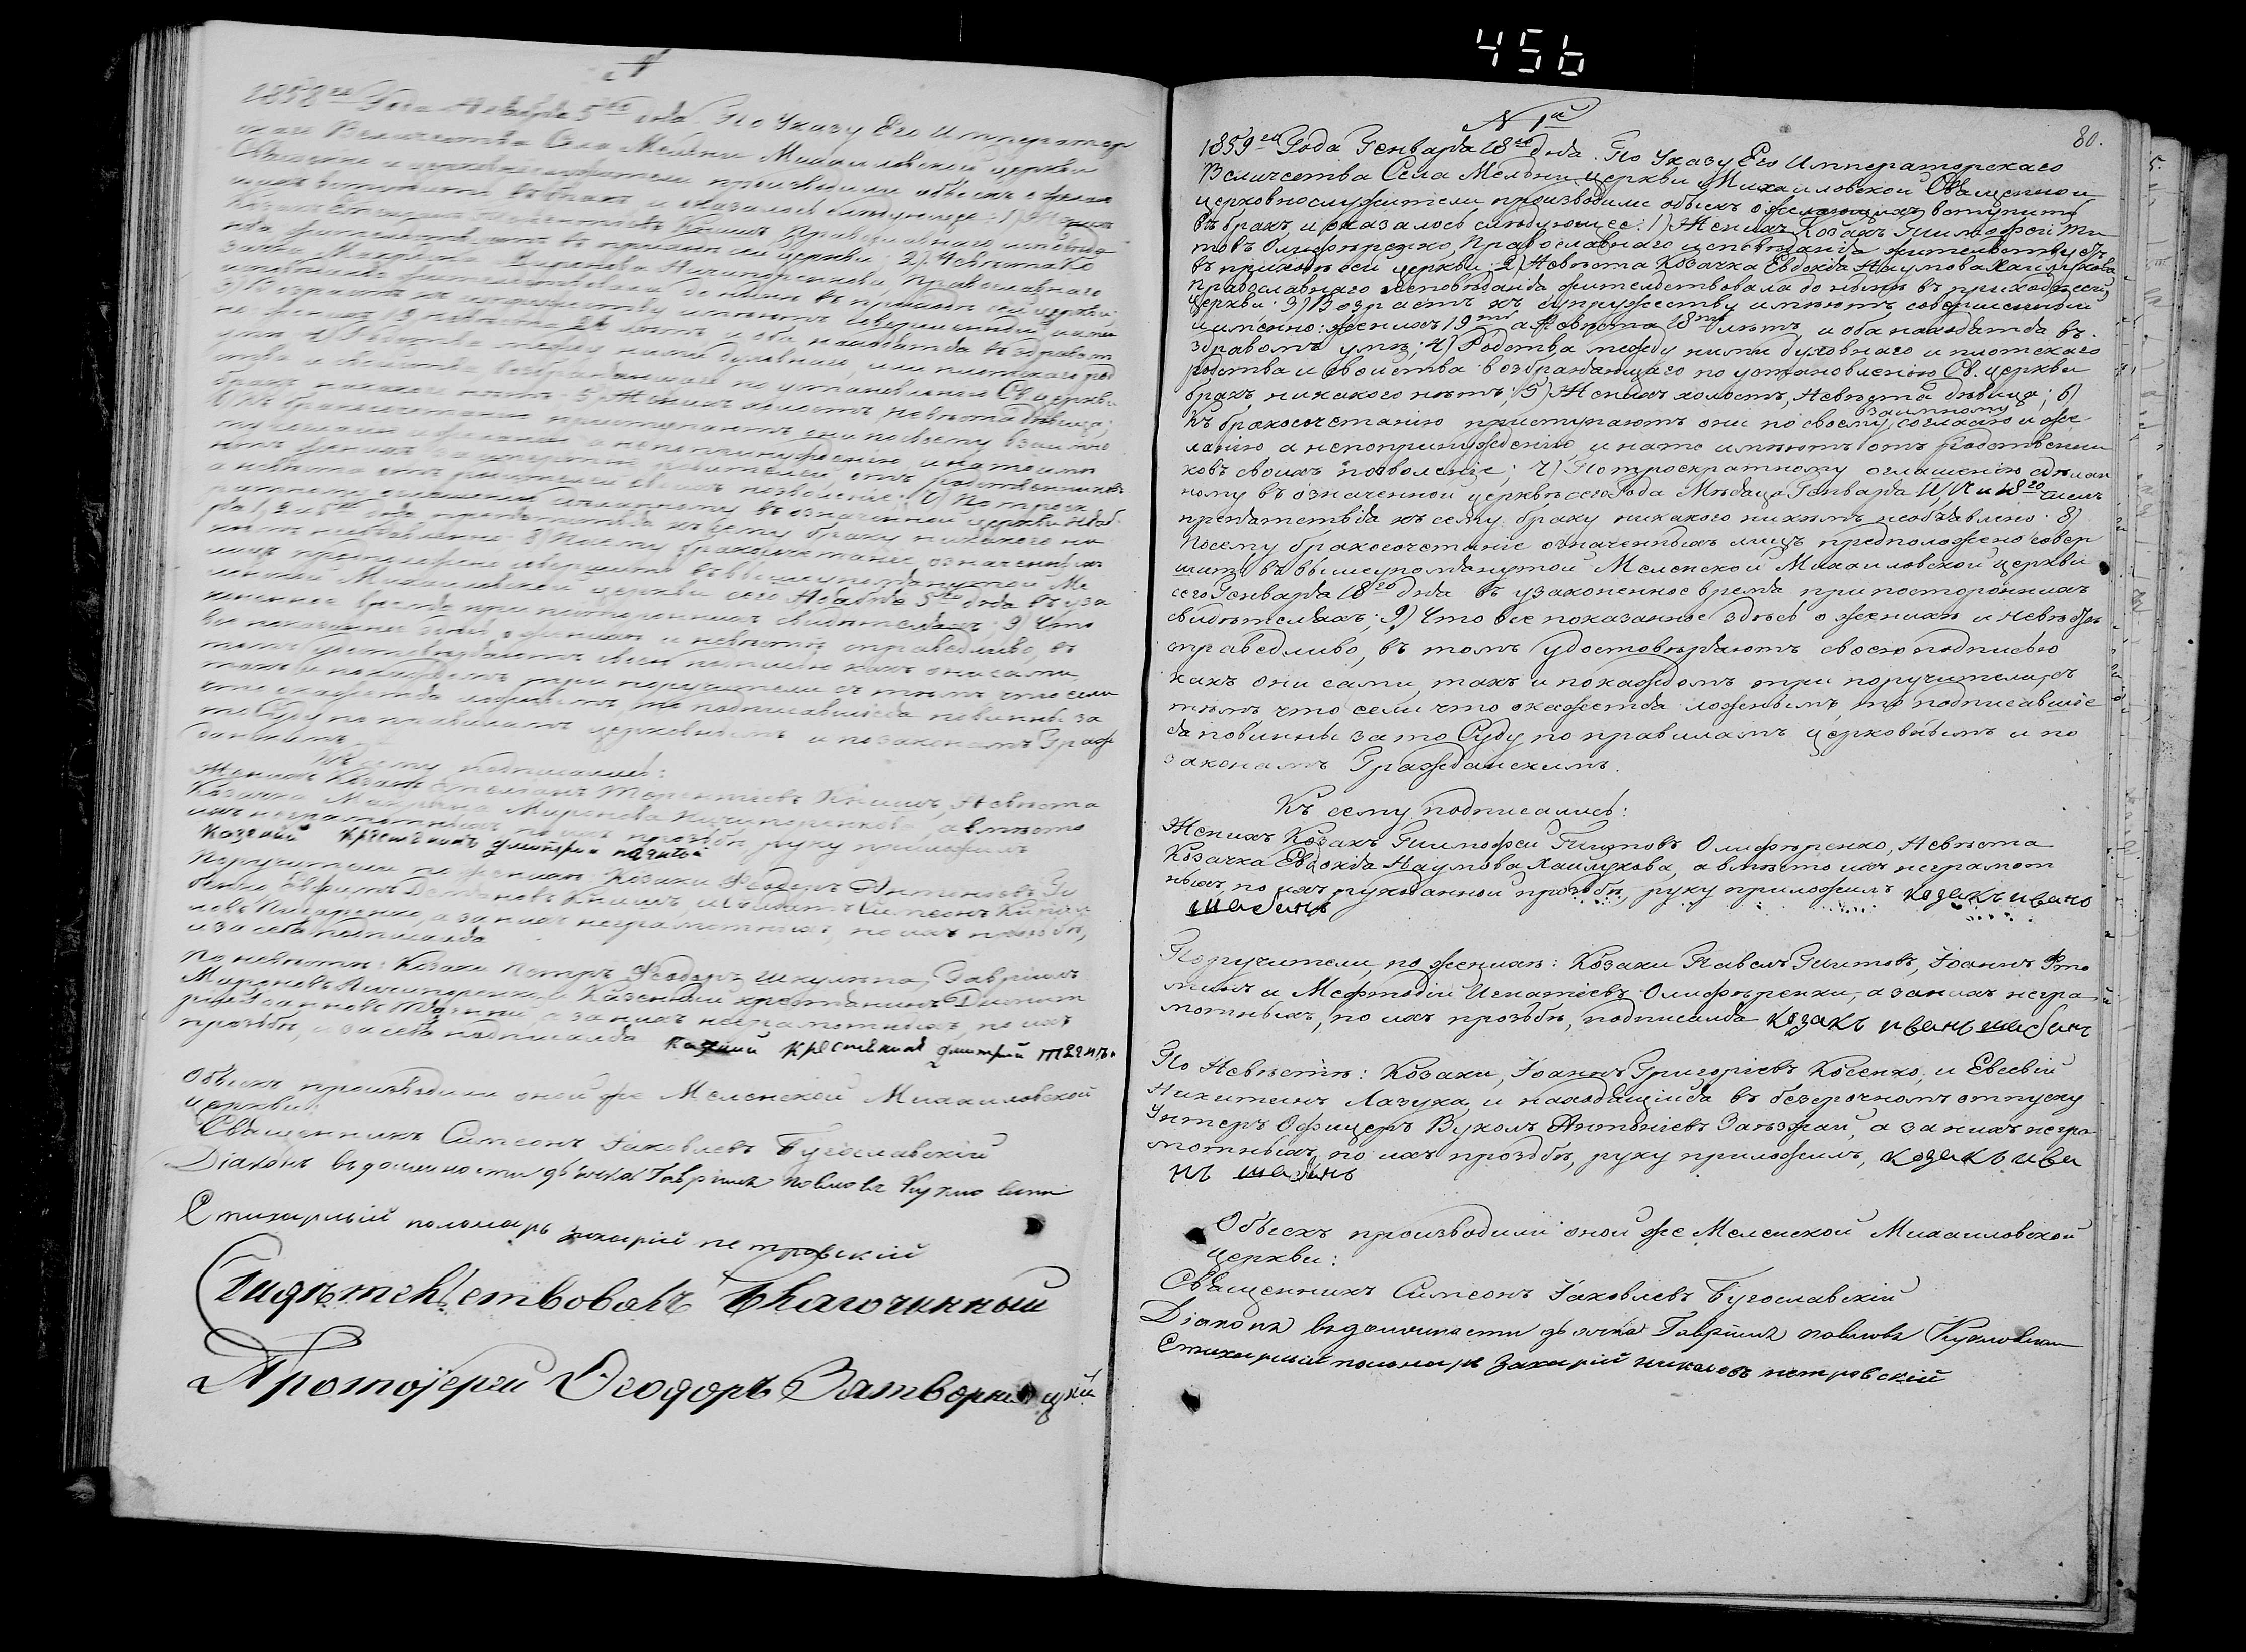 456
1858го Года Ноября 5го дня. По Указу Его Император
скаго Величества Села Мельни Михаиловской церкви
Священно и церковнослужители производили обыскъ о желаю
щихъ вступить въ бракъ и оказалось следующее: 1) Женихъ
Козакъ Стефанъ Терентіевъ Книшъ Православнаго исповеда
нія, жительствуетъ въ приходѣ сей церкви; 2) Невѣста Ко
зачка Мирона Ничипоренкова, Православнаго
исповеданія жительствовала донынѣ въ приходѣ сей церкви
3) Возрастъ къ супружеству имѣютъ совершенный и имен
но женихъ 19 невѣста 21 лѣтъ и оба находятся въ здравомъ
умѣ 4) Родства между ними духовнаго, или плотскаго род
ства и свойства возбраняющаго по установленію Св. церкви
бракъ никакого нѣтъ: 5) Женихъ холостъ, невѣста дѣвица;
6) Къ бракосочетанію приступаютъ они по своему взаимно
му согласію и желанію а непопринужденію, и на то имѣ
ютъ женихъ родителей, отъ родственниковъ
а невѣста отъ родителей своихъ позволеніе; 7) По троек
ратному оглашенію сдѣланному въ означенной церкви Нояб
ря 1, 2 и 5го дня препятствія къ сему браку никакого ни
кѣмъ необъявлено 8) Посему бракосочетаніе означенныхъ
лицъ предположено совершить въ вышеупомянутой Ме
ленской Михаиловской церкви сего Ноября 5го дня въ уза
коненное время при постороннихъ свидѣтеляхъ; 9) Что
все показанное здѣсь о женихѣ и невѣстѣ справедливо, въ
томъ удостовѣряютъ своею подписью какъ они сами
такъ и покаждомъ три поручителя съ тѣмъ что если
что окажется ложнымъ, то подписавшіеся повинны за
то Суду по правиламъ церковнымъ и по законамъ Граж
данскимъ.
Къ сему подписались:
Женихъ Козакъ Стефанъ Терентіевъ Книшъ, Невѣста
Козачка Миронова Ничипоренкова, а вмѣсто
ихъ неграмотныхъ по ихъ прозьбѣ руку приложилъ
Казеный Крестьянинъ Дмитрій
Поручители по женихѣ: Козаки Феодоръ Антоніевъ
Ефимъ Демяновъ Книшъ, и Симеонъ
Писаренко, а за нихъ неграмотныхъ, по ихъ прозьбѣ,
и за себя подписался
По невѣстѣ: Козаки Петръ Феодоръ Шкулипа, Гавріилъ
Мироновъ Ничипоренко и Казенный крестьянинъ Димит
рій Іоанновъ а за нихъ неграмотныхъ, по ихъ
прозьбѣ, и за себя подписался Казеный Крестьянинъ Дмитрій
Обыскъ производили оной же Меленской Михаиловской
церкви:
Священникъ Симеонъ Іаковлевъ Бугославскій
Діаконъ въ должности дьячка Гавріилъ Павловъ
Стихарный поломарь Захарій Петровскій
Свидѣтельствовалъ Благочинный
Протоіерей Ѳеодоръ Затворницкій
80.
N 1й
1859го Года Генваря 18го дня. По Указу Его Императорскаго
Величества Села Мельни церкви Михаиловской Священно и
церковнослужители производили обыскъ о желающихъ вступить
въ бракъ, и оказалось слѣдующее: 1) Женихъ Козакъ Тимофей Ти
товъ Олифѣренко, Православнаго исповѣданія жительствуетъ
въ приходѣ сей церкви: 2) Невѣста Козачка Евдокія Наумова Хаилукова
Православнаго исповѣданія жительствовала донынѣ въ приходѣ сей
церкви: 3) Возрастъ къ супружеству имѣютъ совершенный
и именно: женихъ 19ть а Невѣста 18ть лѣтъ и оба находятся въ
здравомъ умѣ; 4) Родства между ними духовнаго и плотскаго
родства и свойства возбраняющаго по установленію Св. церкви
бракъ, никакого нѣтъ; 5) Женихъ холостъ, Невѣста дѣвица; 6)
Къ бракосочетанію приступаютъ они по своему взаимному согласію и же
ланію а непопринужденію, и на то имѣютъ отъ родственни
ковъ своихъ позволеніе; 7) По троекратному оглашенію сдѣлан
ному въ означенной церквѣ сего Года Мѣсяца Генваря 11, и 18го числъ
препятствія къ сему браку никакого никѣмъ необъявлено. 8)
Посему бракосочетаніе означенныхъ лицъ предположено совер
шить въ вышеупомянутой Меленской Михаиловской церкви
сего Генваря 18го дня въ узаконенное время при постороннихъ
свидѣтеляхъ; 9) Что все показанное здѣсь о женихѣ и невѣстѣ
справедливо, въ томъ удостовѣряютъ своею подписью
какъ они сами, такъ и покаждомъ три поручителя, съ
тѣмъ что если что окажется ложнымъ, то подписавшіе
ся повинны за то Суду по правиламъ церковнымъ и по
законамъ Гражданскимъ.
Къ сему подписались:
Женихъ Козакъ Тимофей Титовъ Олифѣренко, Невѣста
Козачка Евдокія Наумова Хаилукова, а вмѣсто ихъ неграмот
ныхъ, по ихъ рукоданной прозьбѣ, руку приложилъ козакъ иванъ
шабанъ
Поручители, по женихѣ: Козаки Павелъ Титовъ, Іоаннъ
и Мефтодій Игнатіевъ Олифѣренки, а за нихъ негра
мотныхъ, по ихъ прозьбѣ, подписался козакъ иванъ шабанъ
По Невѣстѣ: Козаки, Іоаннъ Григоріевъ Косенко, и Евсевій
Никитинъ Лазука, и находящійся въ безсрочномъ отпуску
Унтеръ Офицеръ Вуколъ Антоніевъ Заѣзжай, а за нихъ негра
мотныхъ, по ихъ прозьбѣ, руку приложилъ, козакъ ива
нъ шабанъ
Обыскъ производили оной же Меленской Михаиловской
церкви:
Священникъ Симеонъ Іаковлевъ Бугославскій
Діаконъ въ должности дьячка Гавріилъ Павловъ
Стихарный поломарь Захарій николаевъ петровскій